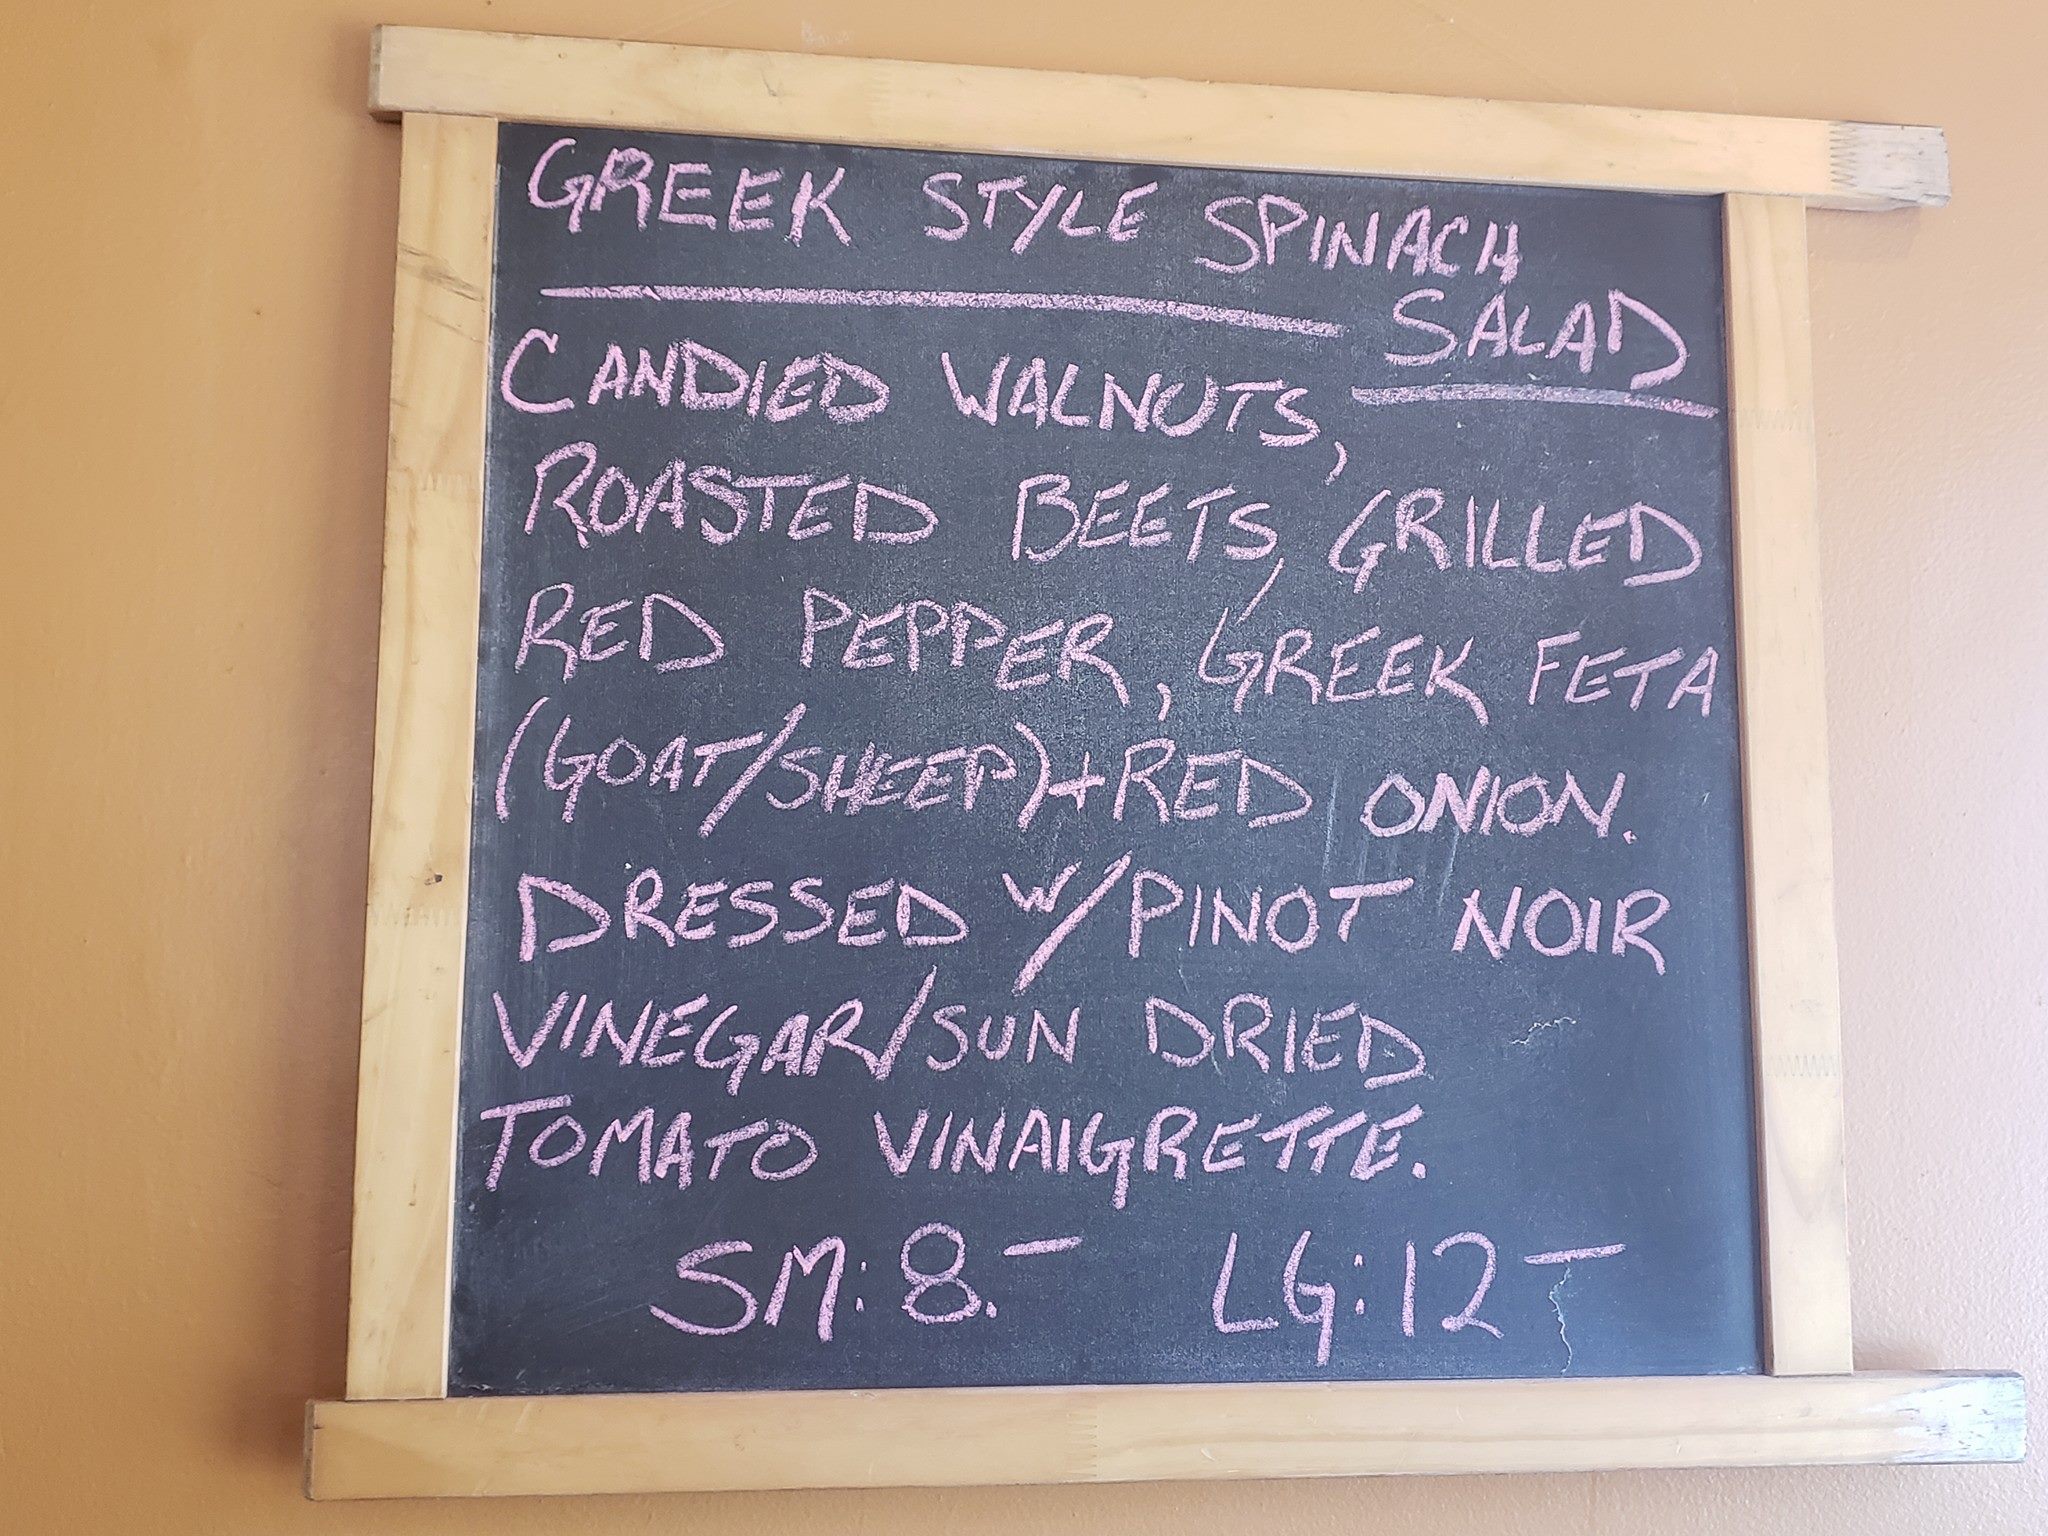 GREEK STYLE SPINACH
SALAD
CANDIED WALNUTS,
ROASTED BEETS, GRILLED
RED PEPPER, GREEK FETA
(GOAT/SHEEP)+RED ONION.
DRESSED W/PINOT NOIR
VINEGAR/SUN DRIED
TOMATO VINAIGRETTE.
SM: 8.— LG: 12—